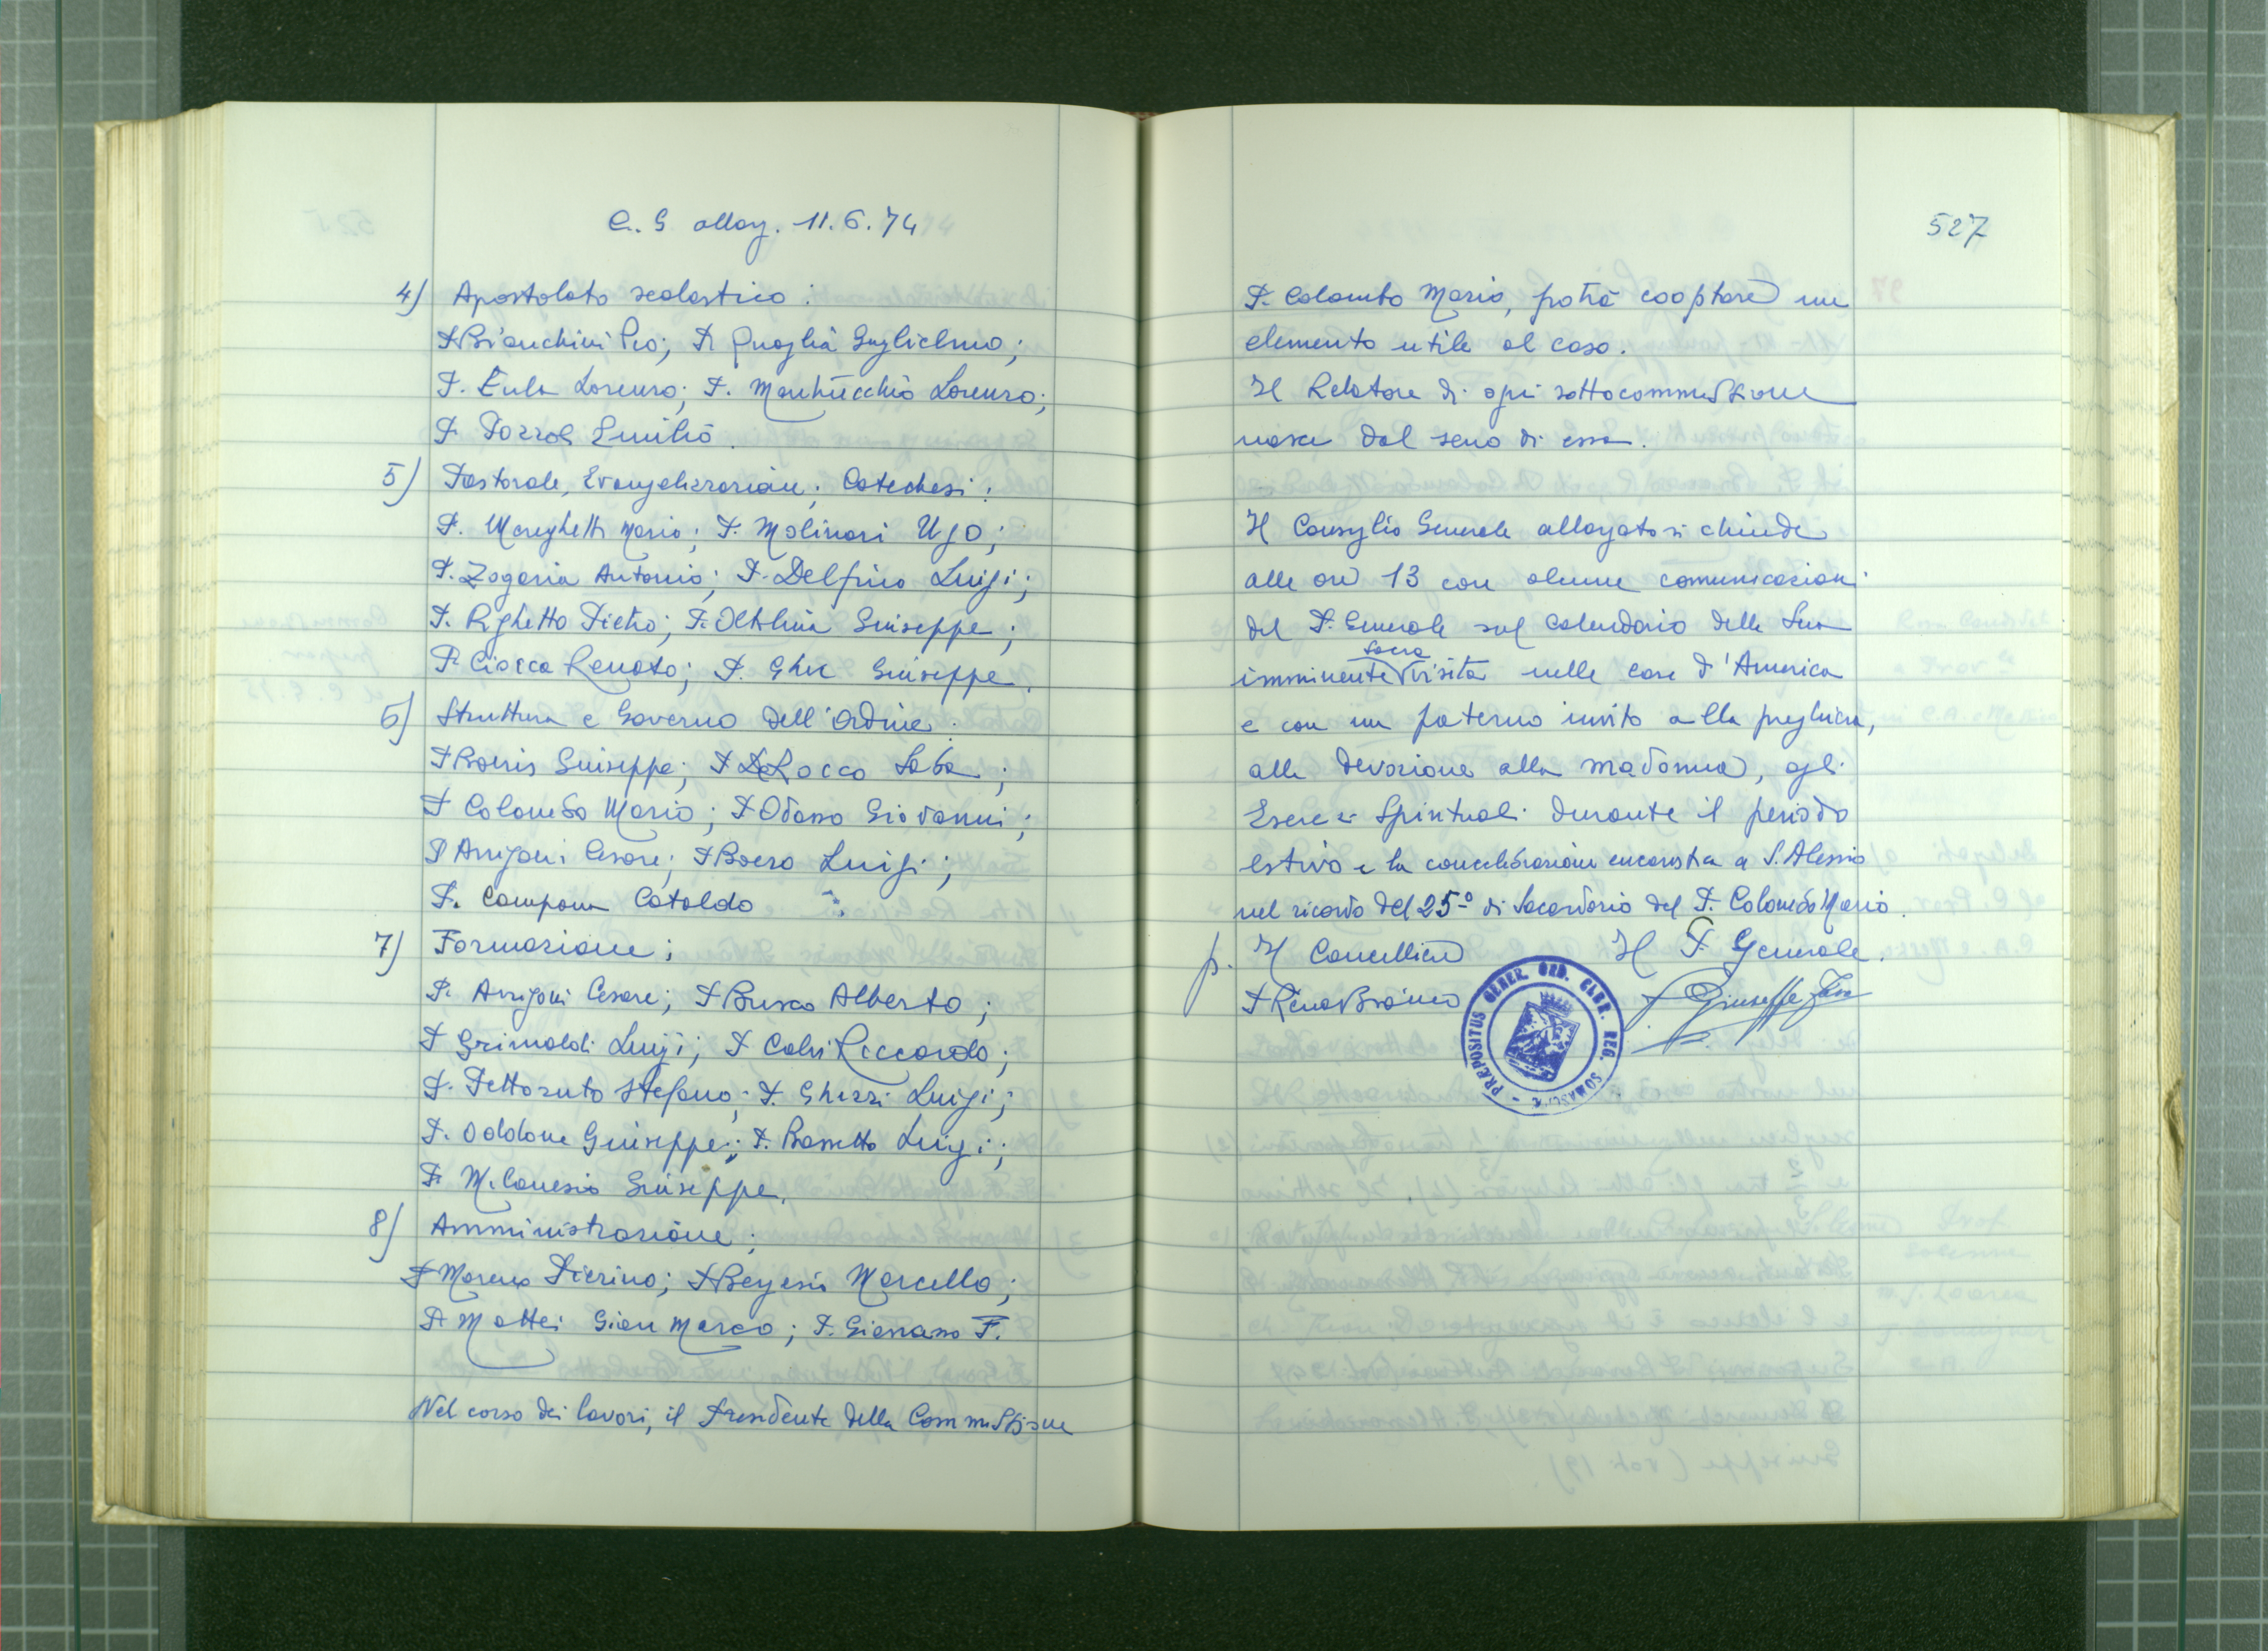 C. G. allarg. 11.6.74
4) Apostolato scolastico:
P. Bianchini Pio; P. Quaglia Guglielmo;
P. Eula Lorenzo; P. Lorenzo;
P. Pozzoli Emilio.
5) Pastorale, Evangelizzazione, Catechesi:
P. Mereghetti Mario; P. Molinari Ugo;
P. Zagaria Antonio; P. Delfino Luigi;
P. Righetto Pietro; P. Oltolina Giuseppe;
P. Ciocca Renato; P. Ghu Giuseppe.
6) Struttura e Governo dell'Ordine.
P. Boeris Giuseppe; P. De Rocco Saba;
P. Colombo Mario; P. Odasso Giovanni;
P. Arrigoni Cesare; P. Boero Luigi;
P. Campana Cataldo
7) Formazione;
P. Arrigoni Cesare; P. Busco Alberto;
P. Grimaldi Luigi; P. Calvi Riccardo;
P. Pettoruto Stefano; P. Ghezzi Luigi;
P. Oddone Giuseppe; P. Bassetto Luigi;
P. M. Canesio Giuseppe.
8) Amministrazione;
P. Moreno Pierino; P. Bergesio Marcello;
P. Mattei Gian Marco; P. F.
Nel corso dei lavori, il Presidente della Commissione
527
P. Colombo Mario, potrà cooptare un
elemento utile al caso.
Il Relatore di ogni sottocommissione
nasce dal seno di essa.
Il Consiglio Generale allargato si chiude
alle ore 13 con alcune comunicazioni
del P. Generale sul calendario della sua
imminente sacra visita nelle case d'America
e con un paterno invito alla preghiera,
alla devozione alla madonna, agli
Eserc.zi Spirituali durante il periodo
estivo e la concelebrazione eucaristica a S. Alessio
nel ricordo del 25º di Sacerdozio del P. Colombo Mario.
p. Il Cancelliere
Il P. Generale.
P. Renato Bianco
P. Giuseppe Fava
PRÆPOSITUS GENER. ORD. CLER. REG. SOMASCHÆ